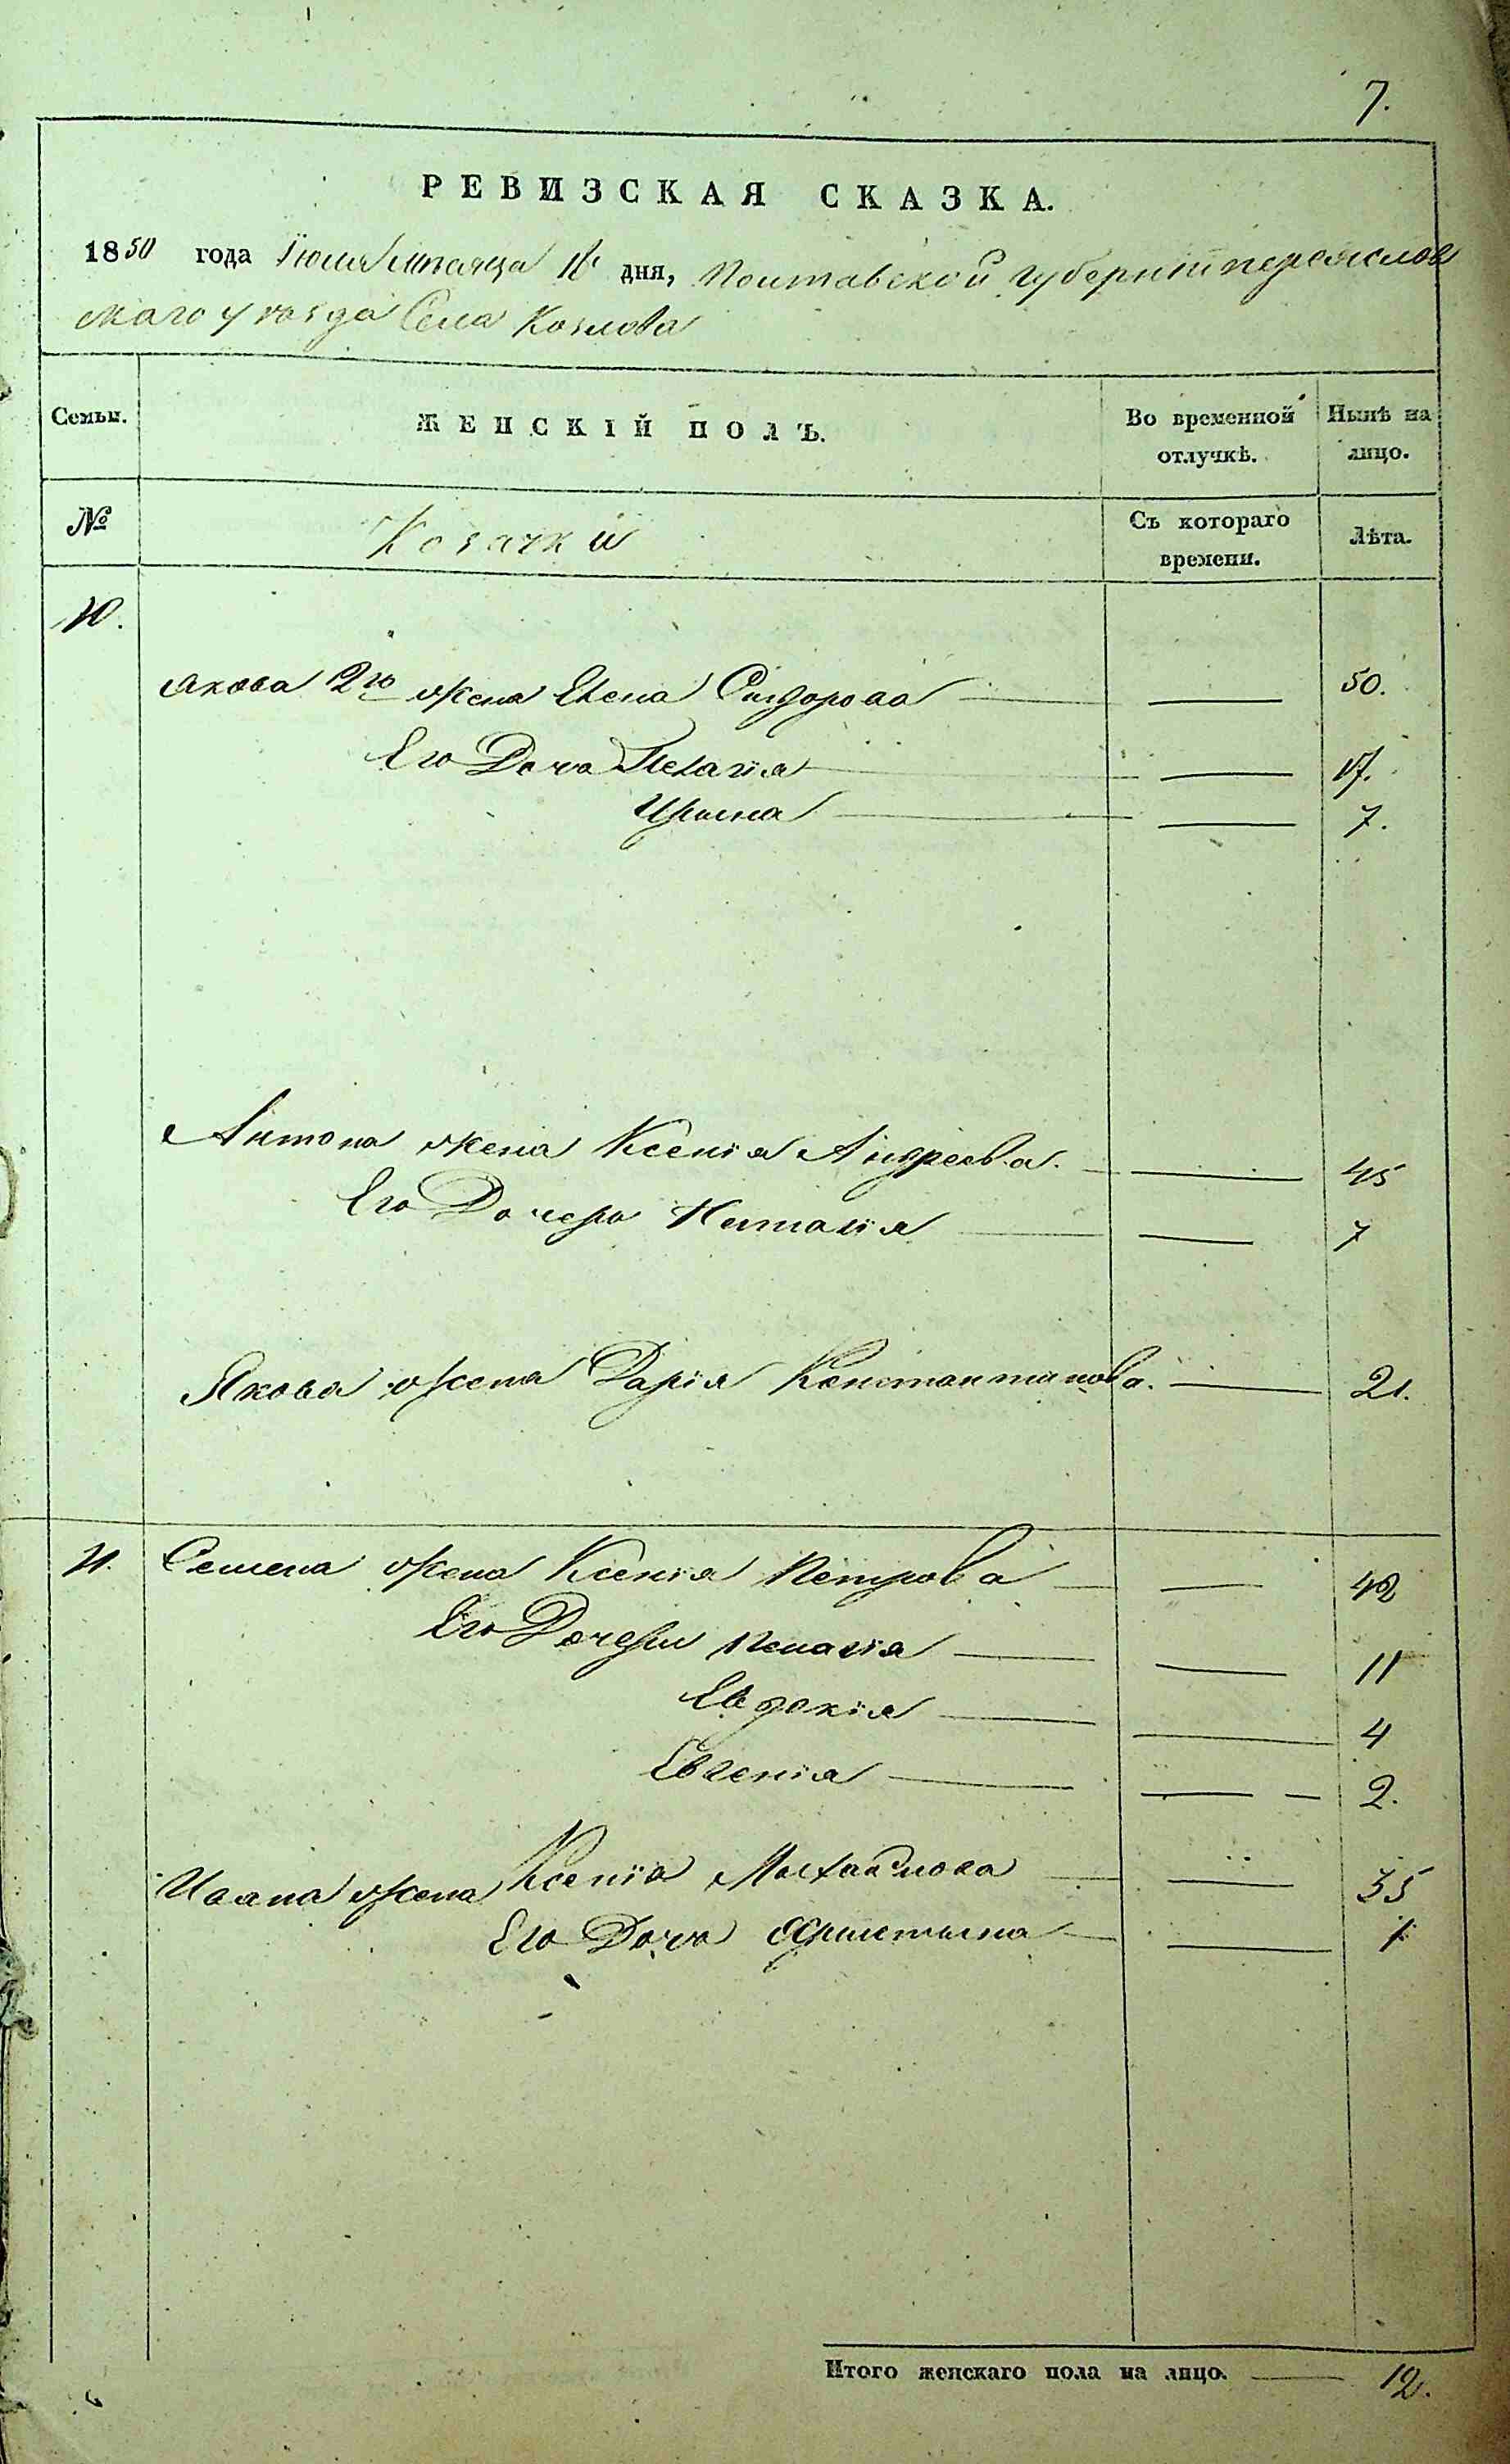 7.
РЕВИЗСКАЯ СКАЗКА.
1850 года Іюля мѣсяца дня, Полтавской губерніи переяслов
скаго уѣзда Села Козлова
Семьи. ЖЕНСКІЙ ПОЛЪ. Во временной отлучкѣ. Нынѣ на лицо.
№ Козачки Съ котораго времени. Лѣта.
10.
Якова 2го жена Елена Сидорова 50.
Его Дочь Пелагія 17.
Ирина 7.
Антона жена Ксенія Андреева. 45
Его Дочерь Наталія 7
Якова жена Дарія Константинова. 21.
11. Семена жена Ксенія Петрова 42
Его Дочери Пелагія 11
Евдокія 4
Евгенія 2.
Ивана жена Ксенія Михайлова 35
Его Дочь Христина 1
Итого женскаго пола на лицо. 12.